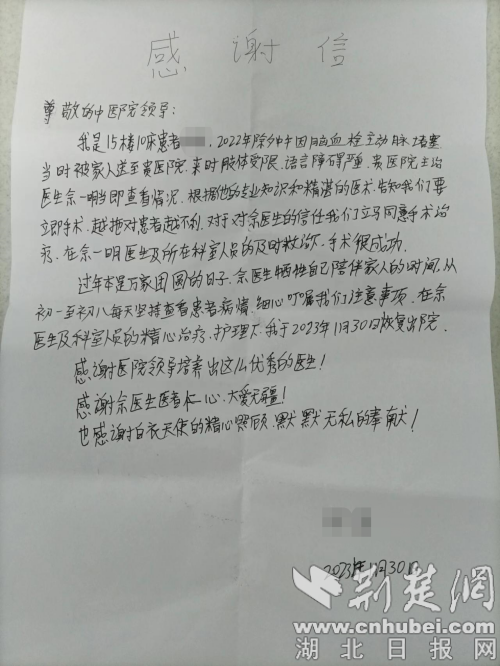 感谢信
尊敬的中医院领导：
我是15楼10床患者 ，2022年除夕年因脑血栓主动脉堵塞
当时被家人送至贵医院。来时肢体受限、语言障碍严重，贵医院主治
医生余一明当即查看情况，根据他的专业知识和精湛的医术，告知我们要
立即手术，越拖对患者越不利，对于对余医生的信任我们立马同意手术治
疗，在余一明医生及所在科室人员的及时救治下，手术很成功。
过年本是万家团圆的日子，余医生牺牲自己陪伴家人的时间，从
初一至初八每天坚持查看患者病情，细心叮嘱我们注意事项，在余
医生及科室人员的精心治疗、护理下，我于2023年1月30日恢复出院。
感谢医院领导培养出这么优秀的医生！
感谢余医生医者仁心、大爱无疆！
也感谢白衣天使的精心照顾、默默无私的奉献！
2023年1月30日
荆楚网
www.cnhubei.com
湖北日报网